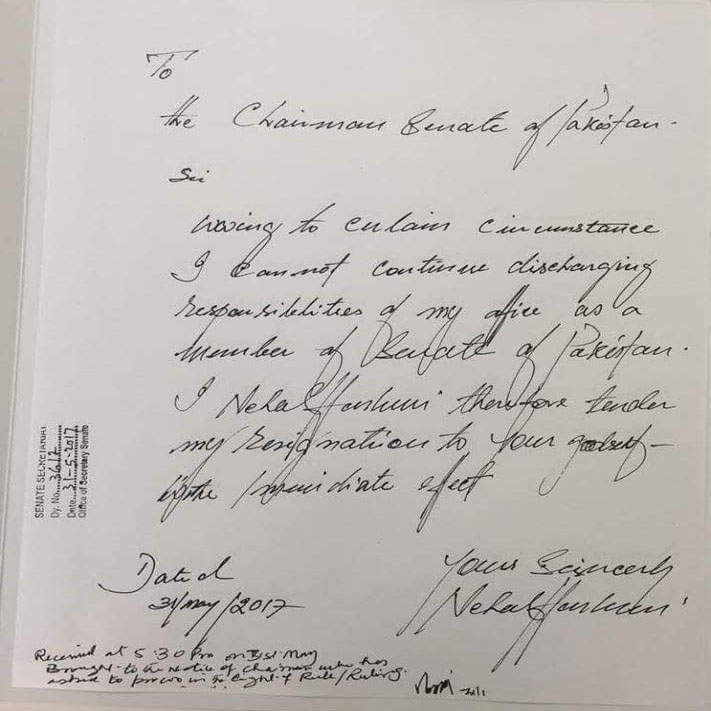 To
the Chairman Senate of Pakistan.
Sir
owing to certain circumstance
I cannot continue discharging
responsibilities of my office as a
member of Senate of Pakistan.
I Nehal Hashmi therefore tender
my resignation to your goodself
with immediate effect
Yours Scincerly
Nehal Hashmi
Dated
31/May/2017
Received at 5:30 Pm on 31st May
Brought to the notice of Chairman who has
asked to process in the light of Rule/Ruling.
SENATE SECRETARIAT
Dy. No. 3612
Date 31-5-2017
Office of Secretary Senate